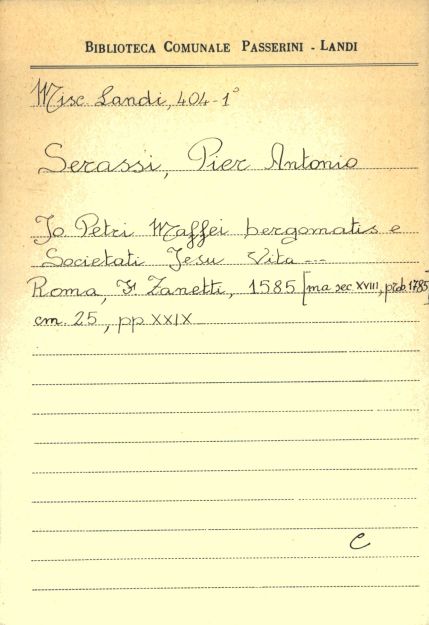 BIBLIOTECA COMUNALE PASSERINI - LANDI
Misc. Landi, 404-1°
Serassi, Pier Antonio
Jo. Petri Maffei bergomatis e
Societati Jesu Vita ---
Roma, F. Zanetti, 1585 [ma sec XVIII, prob. 1785]
cm. 25, pp XXIX
C